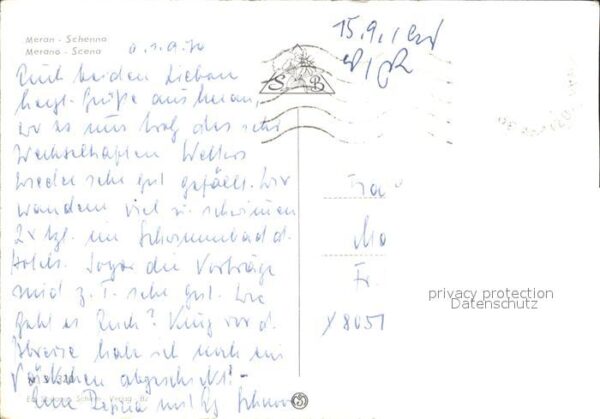 Meran - Schenna
Merano - Scena
15.9.
Euch beiden Lieben
herzl. Grüße aus Meran,
wo es uns trotz des sehr
wechselhaften Wetters
wieder sehr gut gefällt. Wir
wandern viel u. schwimmen
2x tgl. im Schwimmbad d.
Hotels. Sogar die Vorträge
sind z. T. sehr gut. Wie
geht es Euch? Kurz vor d.
Abreise habe ich noch ein
Päckchen abgeschickt! -
Eure
S B
Fr.
8051
privacy protection
Datenschutz